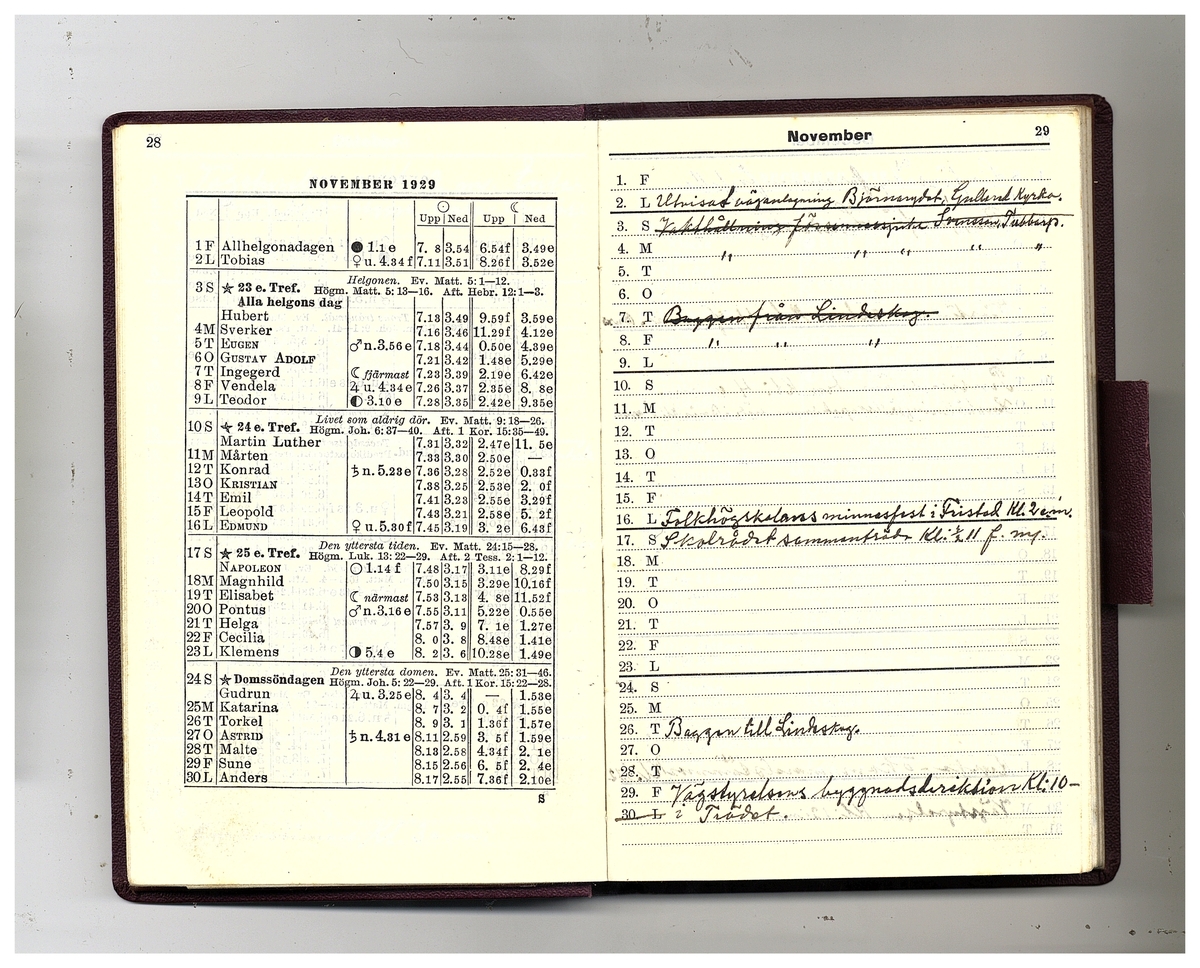 28
NOVEMBER 1929
☉ ☾
Upp Ned Upp Ned
1 F Allhelgonadagen ● 1.1 e 7. 8 3.54 6.54f 3.49e
2 L Tobias ♀ u. 4.34 f 7.11 3.51 8.26f 3.52e
3 S ★ 23 e. Tref. Helgonen. Ev. Matt. 5: 1—12.
Högm. Matt. 5: 13—16. Aft. Hebr. 12: 1—3.
Alla helgons dag
Hubert 7.13 3.49 9.59f 3.59e
4 M Sverker 7.16 3.46 11.29f 4.12e
5 T EUGEN ♂ n. 3.56 e 7.18 3.44 0.50e 4.39e
6 O GUSTAV ADOLF 7.21 3.42 1.48e 5.29e
7 T Ingegerd ☾ fjärmast 7.23 3.39 2.19e 6.42e
8 F Vendela ♃ u. 4.34e 7.26 3.37 2.35e 8. 8e
9 L Teodor ◐ 3.10 e 7.28 3.35 2.42e 9.35e
10 S ★ 24 e. Tref. Livet som aldrig dör. Ev. Matt. 9: 18—26.
Högm. Joh. 6: 37—40. Aft. 1 Kor. 15: 35—49.
Martin Luther 7.31 3.32 2.47e 11. 5e
11 M Mårten 7.33 3.30 2.50e —
12 T Konrad ♄ n. 5.23e 7.36 3.28 2.52e 0.33f
13 O KRISTIAN 7.38 3.25 2.53e 2. 0f
14 T Emil 7.41 3.23 2.55e 3.29f
15 F Leopold 7.43 3.21 2.58e 5. 2f
16 L EDMUND ♀ u. 5.30 f 7.45 3.19 3. 2e 6.43f
17 S ★ 25 e. Tref. Den yttersta tiden. Ev. Matt. 24: 15—28.
Högm. Luk. 13: 22—29. Aft. 2 Tess. 2: 1—12.
NAPOLEON ○ 1.14 f 7.48 3.17 3.11e 8.29f
18 M Magnhild 7.50 3.15 3.29e 10.16f
19 T Elisabet ☾ närmast 7.53 3.13 4. 8e 11.52f
20 O Pontus ♂ n. 3.16 e 7.55 3.11 5.22e 0.55e
21 T Helga 7.57 3. 9 7. 1e 1.27e
22 F Cecilia 8. 0 3. 8 8.48e 1.41e
23 L Klemens ◑ 5.4 e 8. 2 3. 6 10.28e 1.49e
24 S ★ Domssöndagen Den yttersta domen. Ev. Matt. 25: 31—46.
Högm. Joh. 5: 22—29. Aft. 1 Kor. 15: 22—28.
Gudrun ♃ u. 3.25 e 8. 4 3. 4 — 1.53e
25 M Katarina 8. 7 3. 2 0. 4f 1.55e
26 T Torkel 8. 9 3. 1 1.36f 1.57e
27 O ASTRID ♄ n. 4.31 e 8.11 2.59 3. 5f 1.59e
28 T Malte 8.13 2.58 4.34f 2. 1e
29 F Sune 8.15 2.56 6. 5f 2. 4e
30 L Anders 8.17 2.55 7.36f 2.10e
S
November 29
1. F
2. L Utvisat väganlagning Björnsrydet, Gullered Kyrka.
3. S Vakthållning Svensson, Tubbarp.
4. M " " " " "
5. T
6. O
7. T Baggen från Lindeskog.
8. F " " "
9. L
10. S
11. M
12. T
13. O
14. T
15. F
16. L Folkhögskolans minnesfest i Fristad Kl. 2 e.m.
17. S Skolrådet sammanträde Kl. ½ 11 f. m.
18. M
19. T
20. O
21. T
22. F
23. L
24. S
25. M
26. T Baggen till Lindeskog.
27. O
28. T
29. F Vägstyrelsens byggnadsdirektion Kl: 10 —
30. L i Trädet.